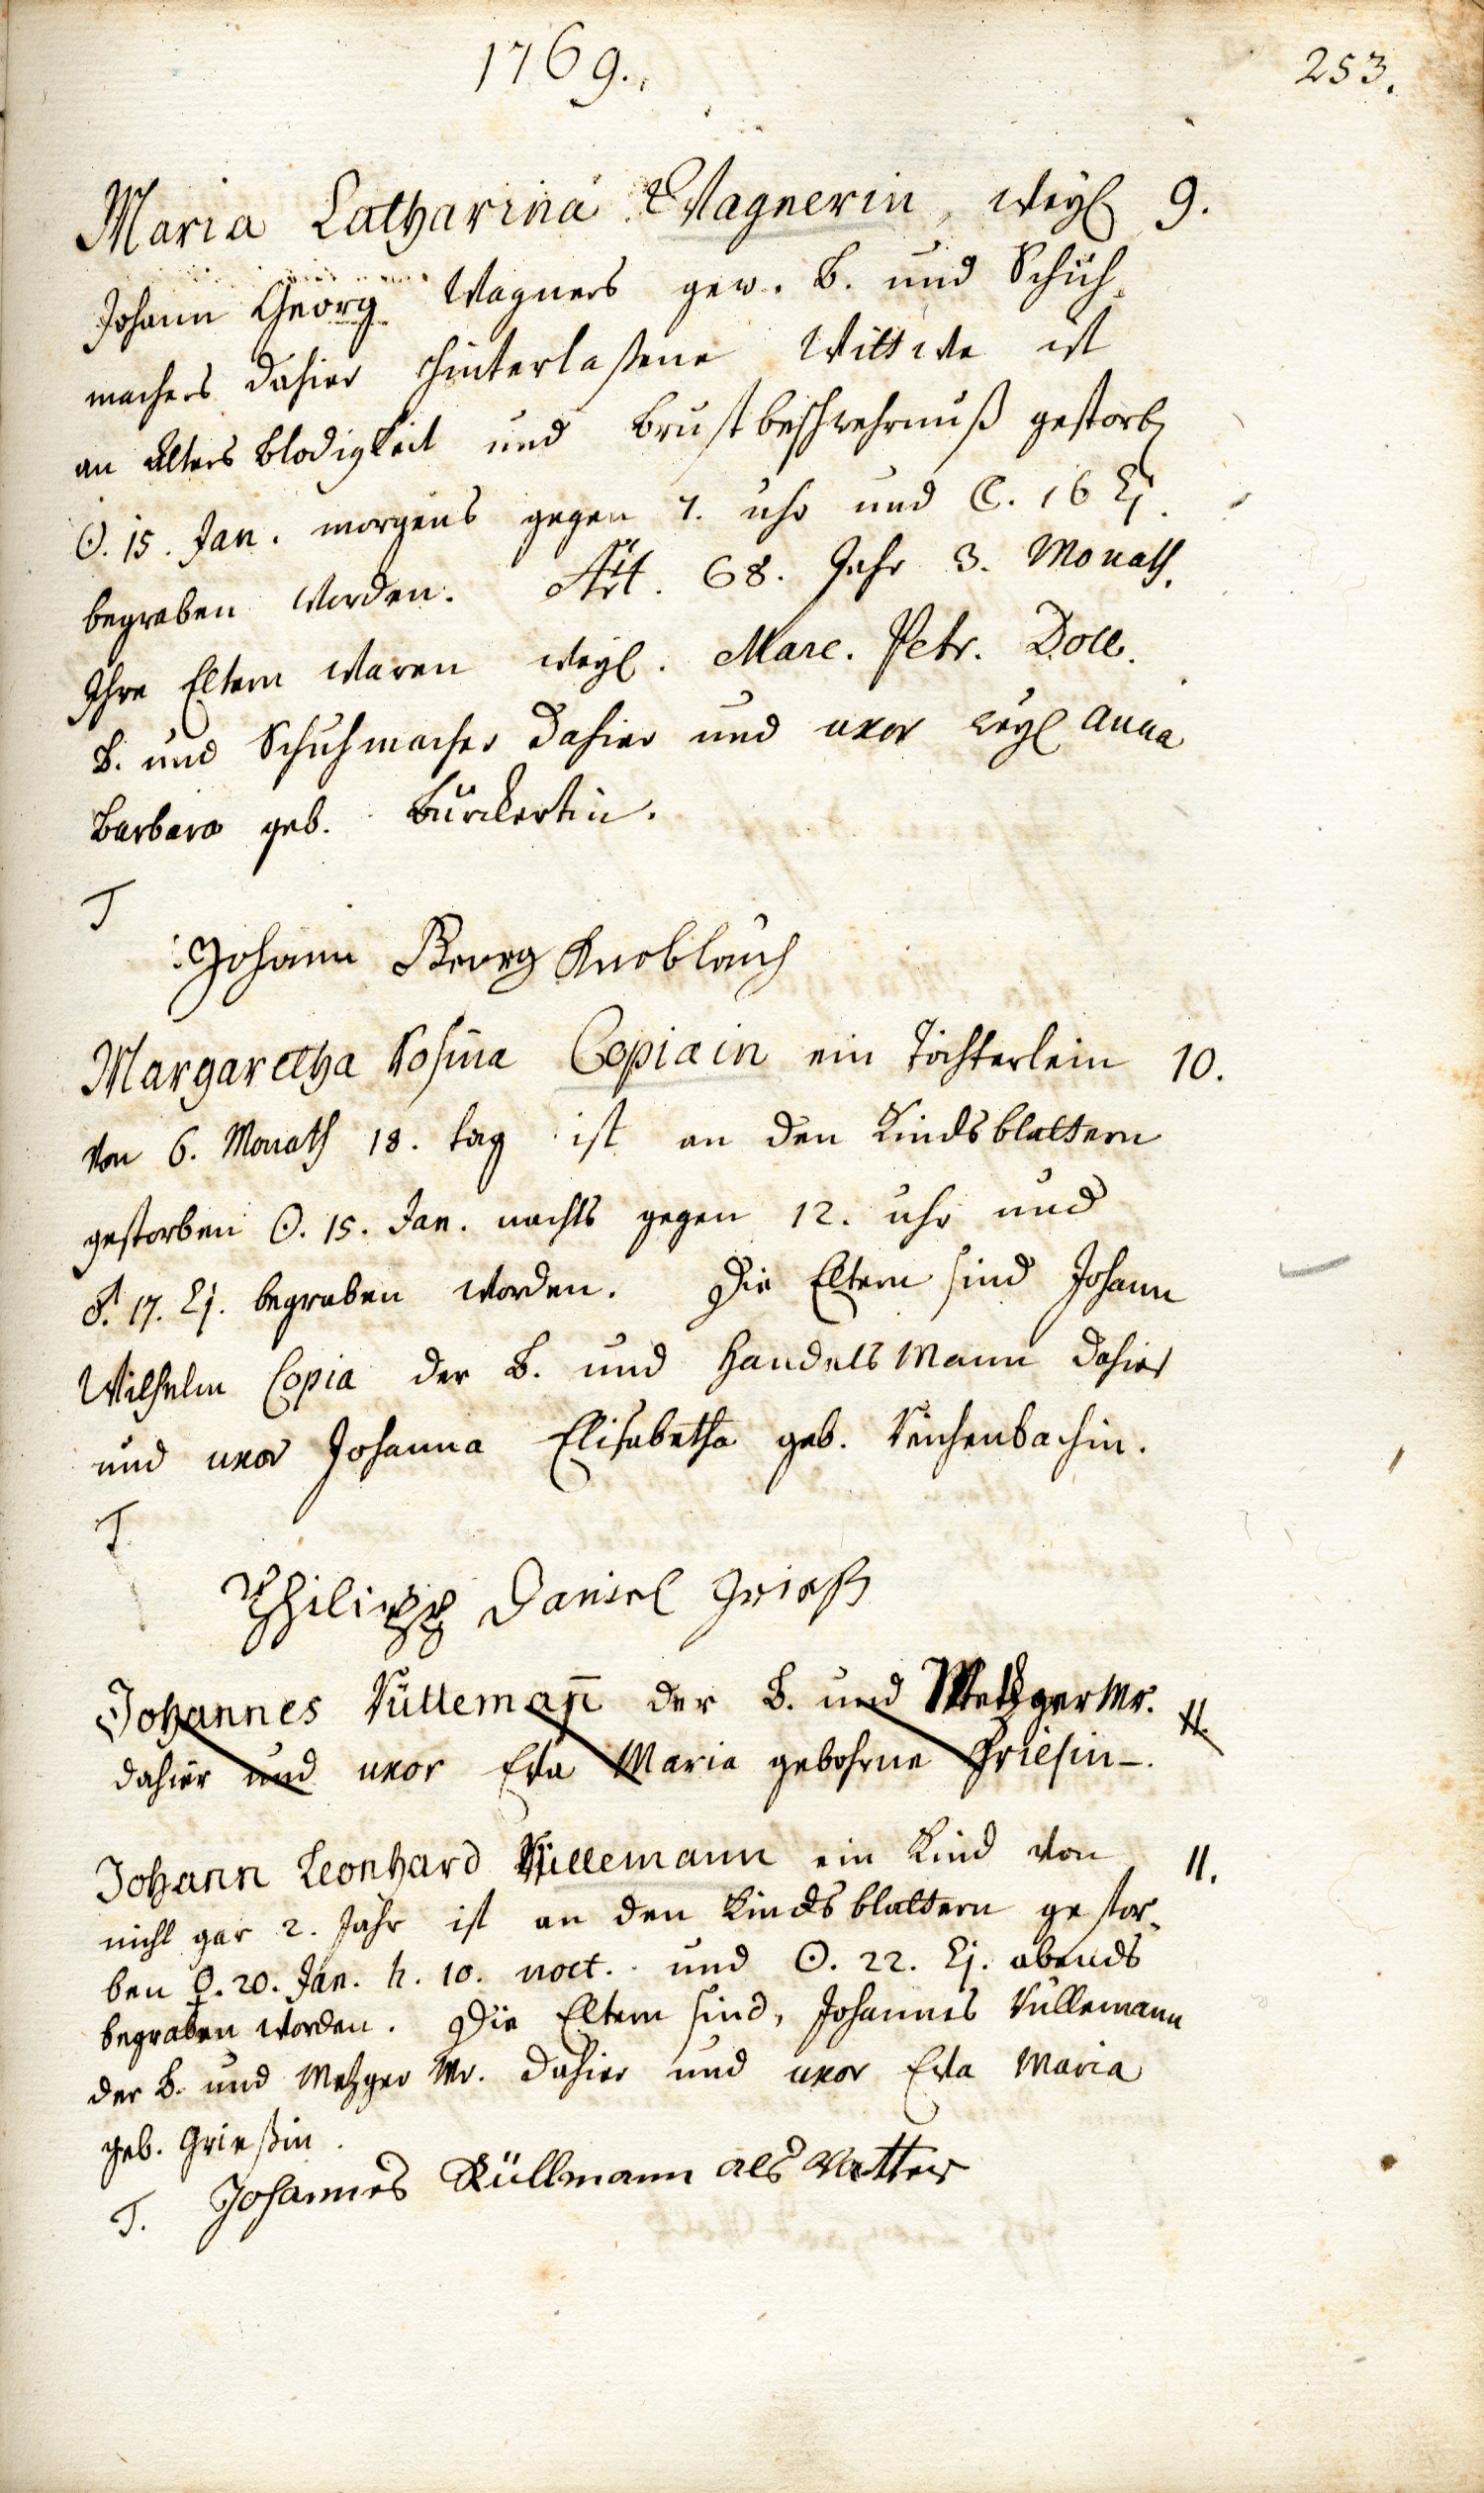 1769.
253.
Maria Catharina Wagnerin, weyl. 9.
Johann Georg Wagners gew. B. und Schuh-
machers dahier hinterlaßene Wittwe ist
an Alters Blödigkeit und Brustbeschwehrnuß gestorb.
☉. 15. Jan. morgens gegen 7. uhr und ☾. 16 Ej.
begraben worden. Æt. 68. Jahr 3. Monath.
Ihre Eltern waren weyl. Marc. Petr. Doll.
B. und Schuhmacher dahier und uxor weyl. Anna
Barbara geb. Burckertin.
T
Johann Georg Knoblauch
Margaretha Rosina Copiain ein Töchterlein 10.
von 6. Monath 18. tag ist an den Kindsblattern
gestorben ☉. 15. Jan. nachts gegen 12. uhr und
♂. 17. Ej. begraben worden. Die Eltern sind Johann
Wilhelm Copia der B. und Handels Mann dahier
und uxor Johanna Elisabetha geb. Reichenbachin.
T.
Philipp Daniel Grieß
Johannes Rullemañ der B. und Metzger Mr. 11.
dahier und uxor Eva Maria gebohrne Griesin.
Johann Leonhard Rüllemann ein Kind von 11.
nicht gar 2. Jahr ist an den Kindsblattern gestor-
ben ♀. 20. Jan. h. 10. noct. und ☉. 22. Ej. abends
begraben worden. Die Eltern sind, Johannes Rullemann
der B. und Metzger Mr. dahier und uxor Eva Maria
geb. Grießin.
T. Johannes Rüllmann als Vatter